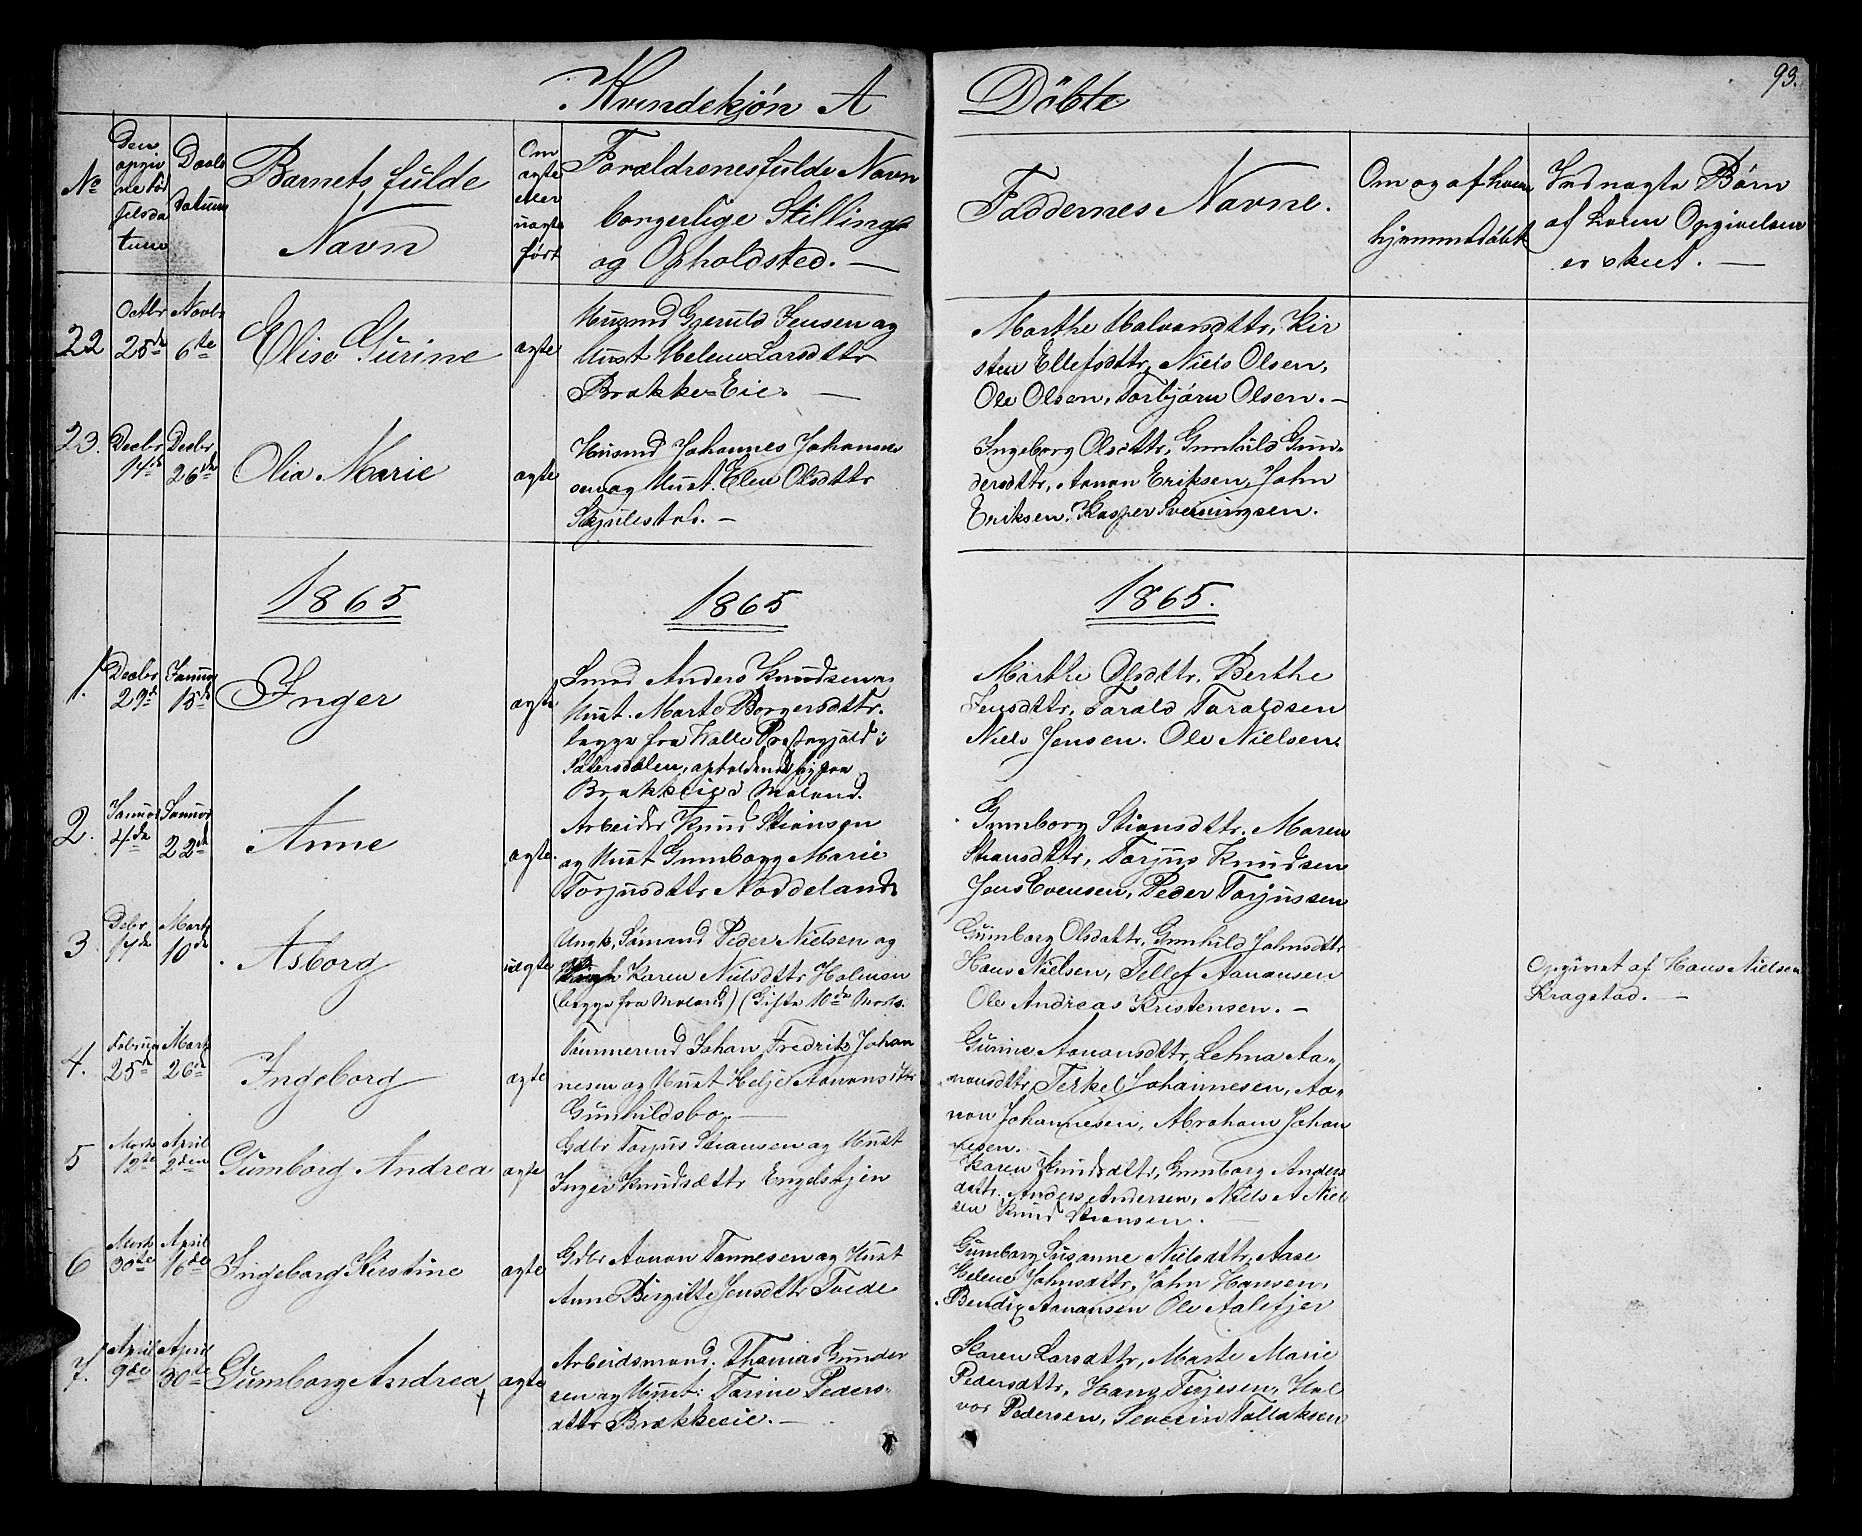 Kvindekjøn A Döbte 93.
No
Den opgivne Fødselsdatum
Daabs Datum
Barnets fulde Navn
Om ægte eller uægte født
Forældrenes fulde Navn
borgerlige Stilling
og Opholdsted. —
Faddernes Navne.
Om og af hvem
hjemmedøbt
Ved uægte Børn
af hvem Opgivelsen
er skeet. —
22 Octbr 25de Novbr 6te Elise Gurine ægte
Husmd Gjeruld Jensen og
Hust Helene Larsdttr
Brække-Eie. —
Marthe Halvorsdttr, Kir
sten Ellefsdttr, Niels Olsen,
Ole Olsen, Torbjørn Olsen. —
23. Decbr 14de Decbr 26de Olia Marie ægte
Husmd Johannes Johanne
sen og Hust. Elen Olsdttr
Skjulestad. —
Ingeborg Olsdttr, Gunhild Gun-
dersdttr, Aanon Eriksen, John
Eriksen, Kasper Sveinungsen.
1865 1865 1865.
1. Decbr 29de Januar 15de Inger ægte
Smed Anders Knudsen og
Hust. Marte Borgersdttr.
begge fra Walle Præstegjæld i
Sætersdalen, opholdende sig paa
Brækkeeie i Moland.
Marthe Olsdttr. Berthe
Jensdttr, Tarald Taraldsen
Niels Jensen. Ole Nielsen.
2. Januar 4de Januar 22de Anne ægte.
Arbeider Knud Stiansen
og Hust Gunborg Marie
Torjusdttr Nøddeland
Gunborg Stiansdttr. Maren
Stiansdttr, Torjus Knudsen
Jens Evensen, Peder Torjussen
3 Febr 17de Marts 10de Asborg uægte
Ungk. Sømand Peder Nielsen og
Karen Nielsdttr Holmen
(begge fra Moland) (Gifte 10de Marts.
Gumborg Olsdattr, Gunhild Johnsdttr
Hans Nielsen, Tellef Aanonsen
Ole Andreas Kristensen. —
Opgivet af Hans Nielsen
Kragstad. —
4. Februar 25de Marts 26de Ingeborg ægte
Tømmermd Johan Fredrik Johan
nesen og Hust Helje Aanonsdttr
Gunhildsbo. —
Gurine Aanonsdttr, Lehna Aa-
nonsdttr, Terkel Johannesen, Aa-
non Johannesen, Abraham Johan
nesen.
5 Marts 12te April 2den Gumborg Andrea ægte
Gdbr Torjus Stiansen og Hust
Inger Knudsdttr Engelstjen
Karen Knudsdttr, Gunborg Anders
dattr. Anders Andersen, Niels A Niel
sen Knud Stiansen.
6 Marts 30te April 16de Ingeborg Kirstine ægte
Gdbr Aanon Tønnesen og Hust
Anne Birgitte Jensdttr Tvede
Gumborg Susanne Nielsdttr, Aase
Helene Johnsdttr, John Hansen,
Bendix Aanonsen Ole Aalefjer
7. April 9de April 30te Gumborg Andrea ægte
Arbeidsmand. Thomas Gunder
sen og Hust: Tarine Peders-
dttr Brækkeeie. —
Karen Larsdttr, Marte Marie
Pedersdttr, Hans Terjesen, Hal
vor Pedersen, Severin Tallaksen